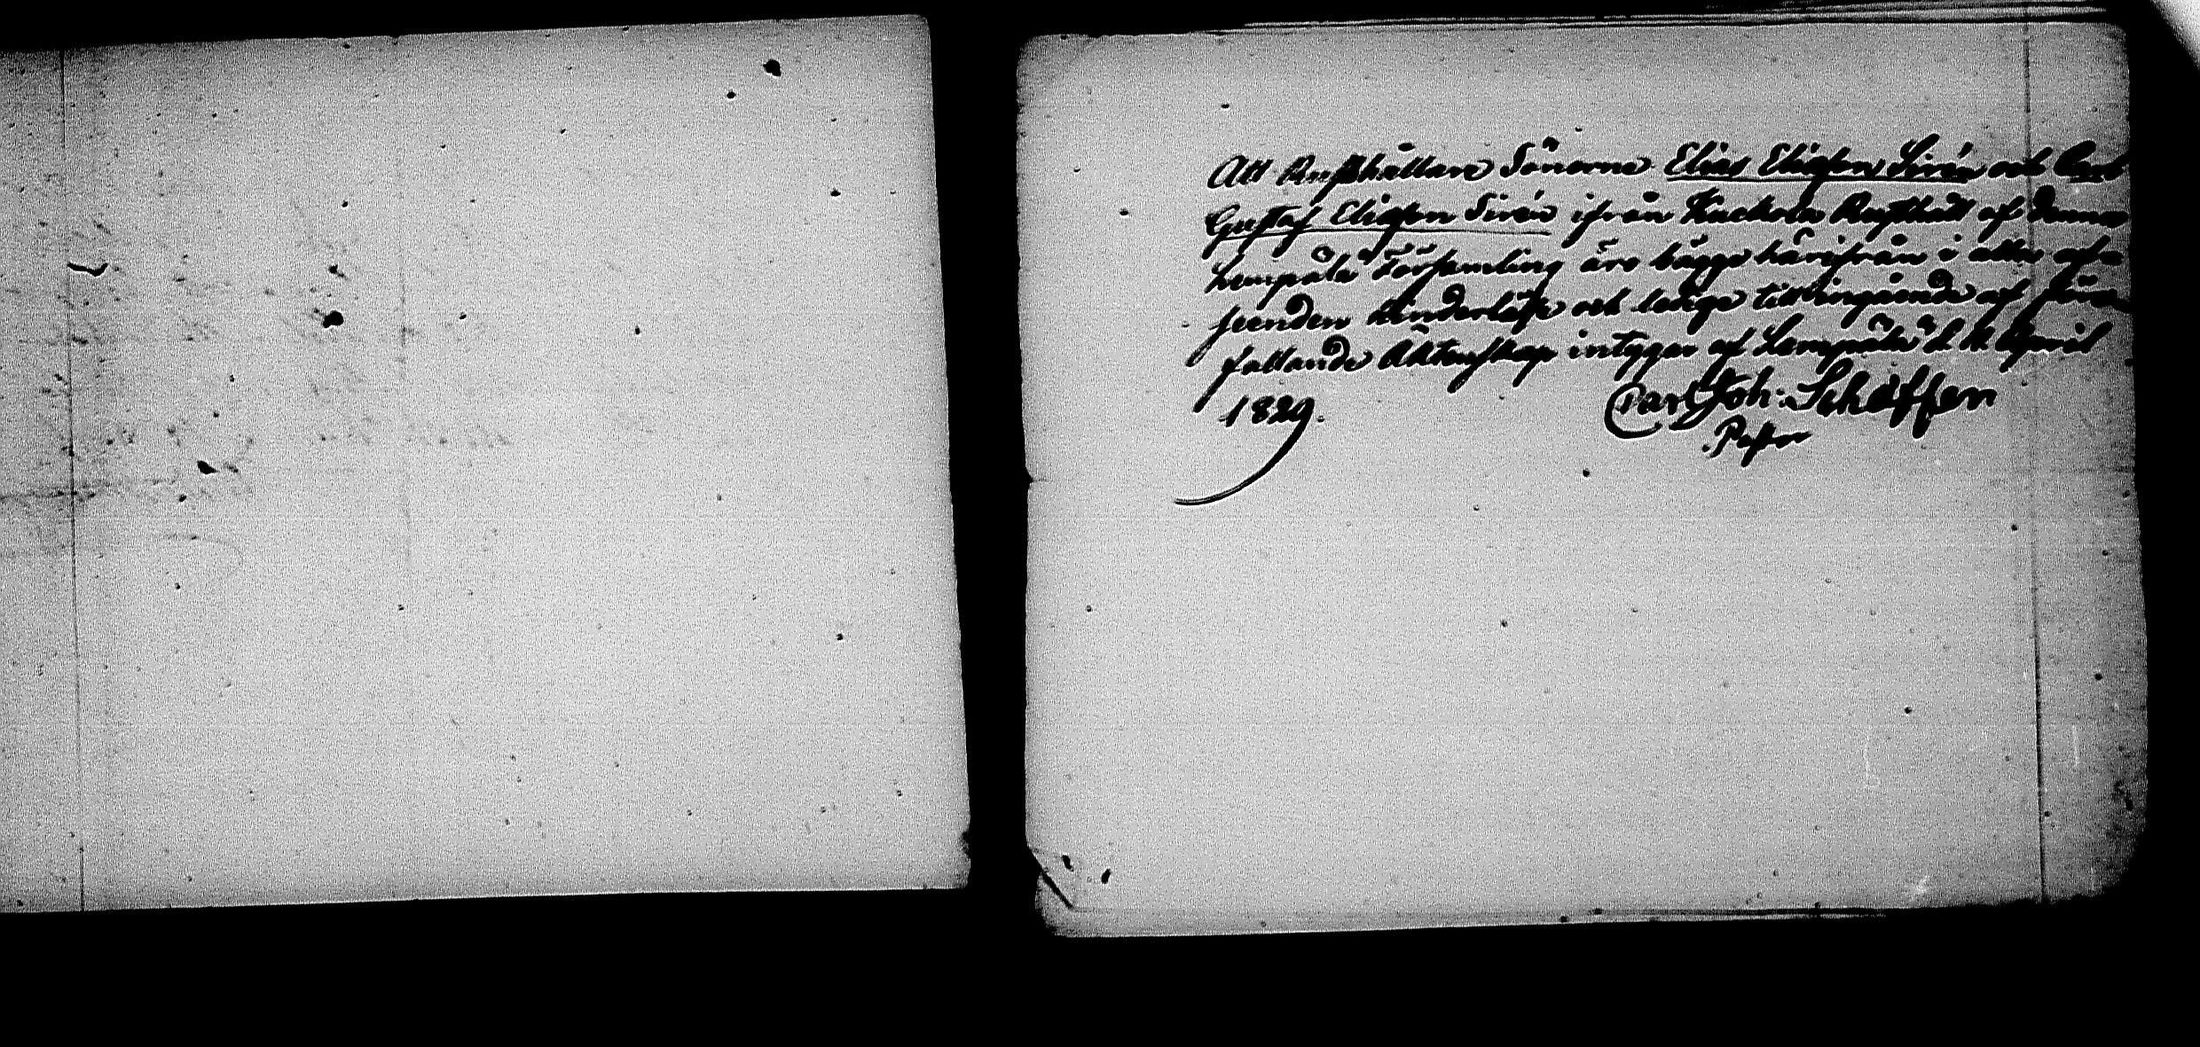 Att Rusthållare Sönerne Elias Eliasson Sirén och Carl
Gustaf Eliasson Sirén ifrån Kuckola Rusthåll af denna
Lempälä Församling äro bägge härifrån i alla af-
seenden hinderlöse och ledige till ingående af före
fallande Äktenskap intygar af Lempälä d. April
1829. Carl Joh: Schäffen
Pastor